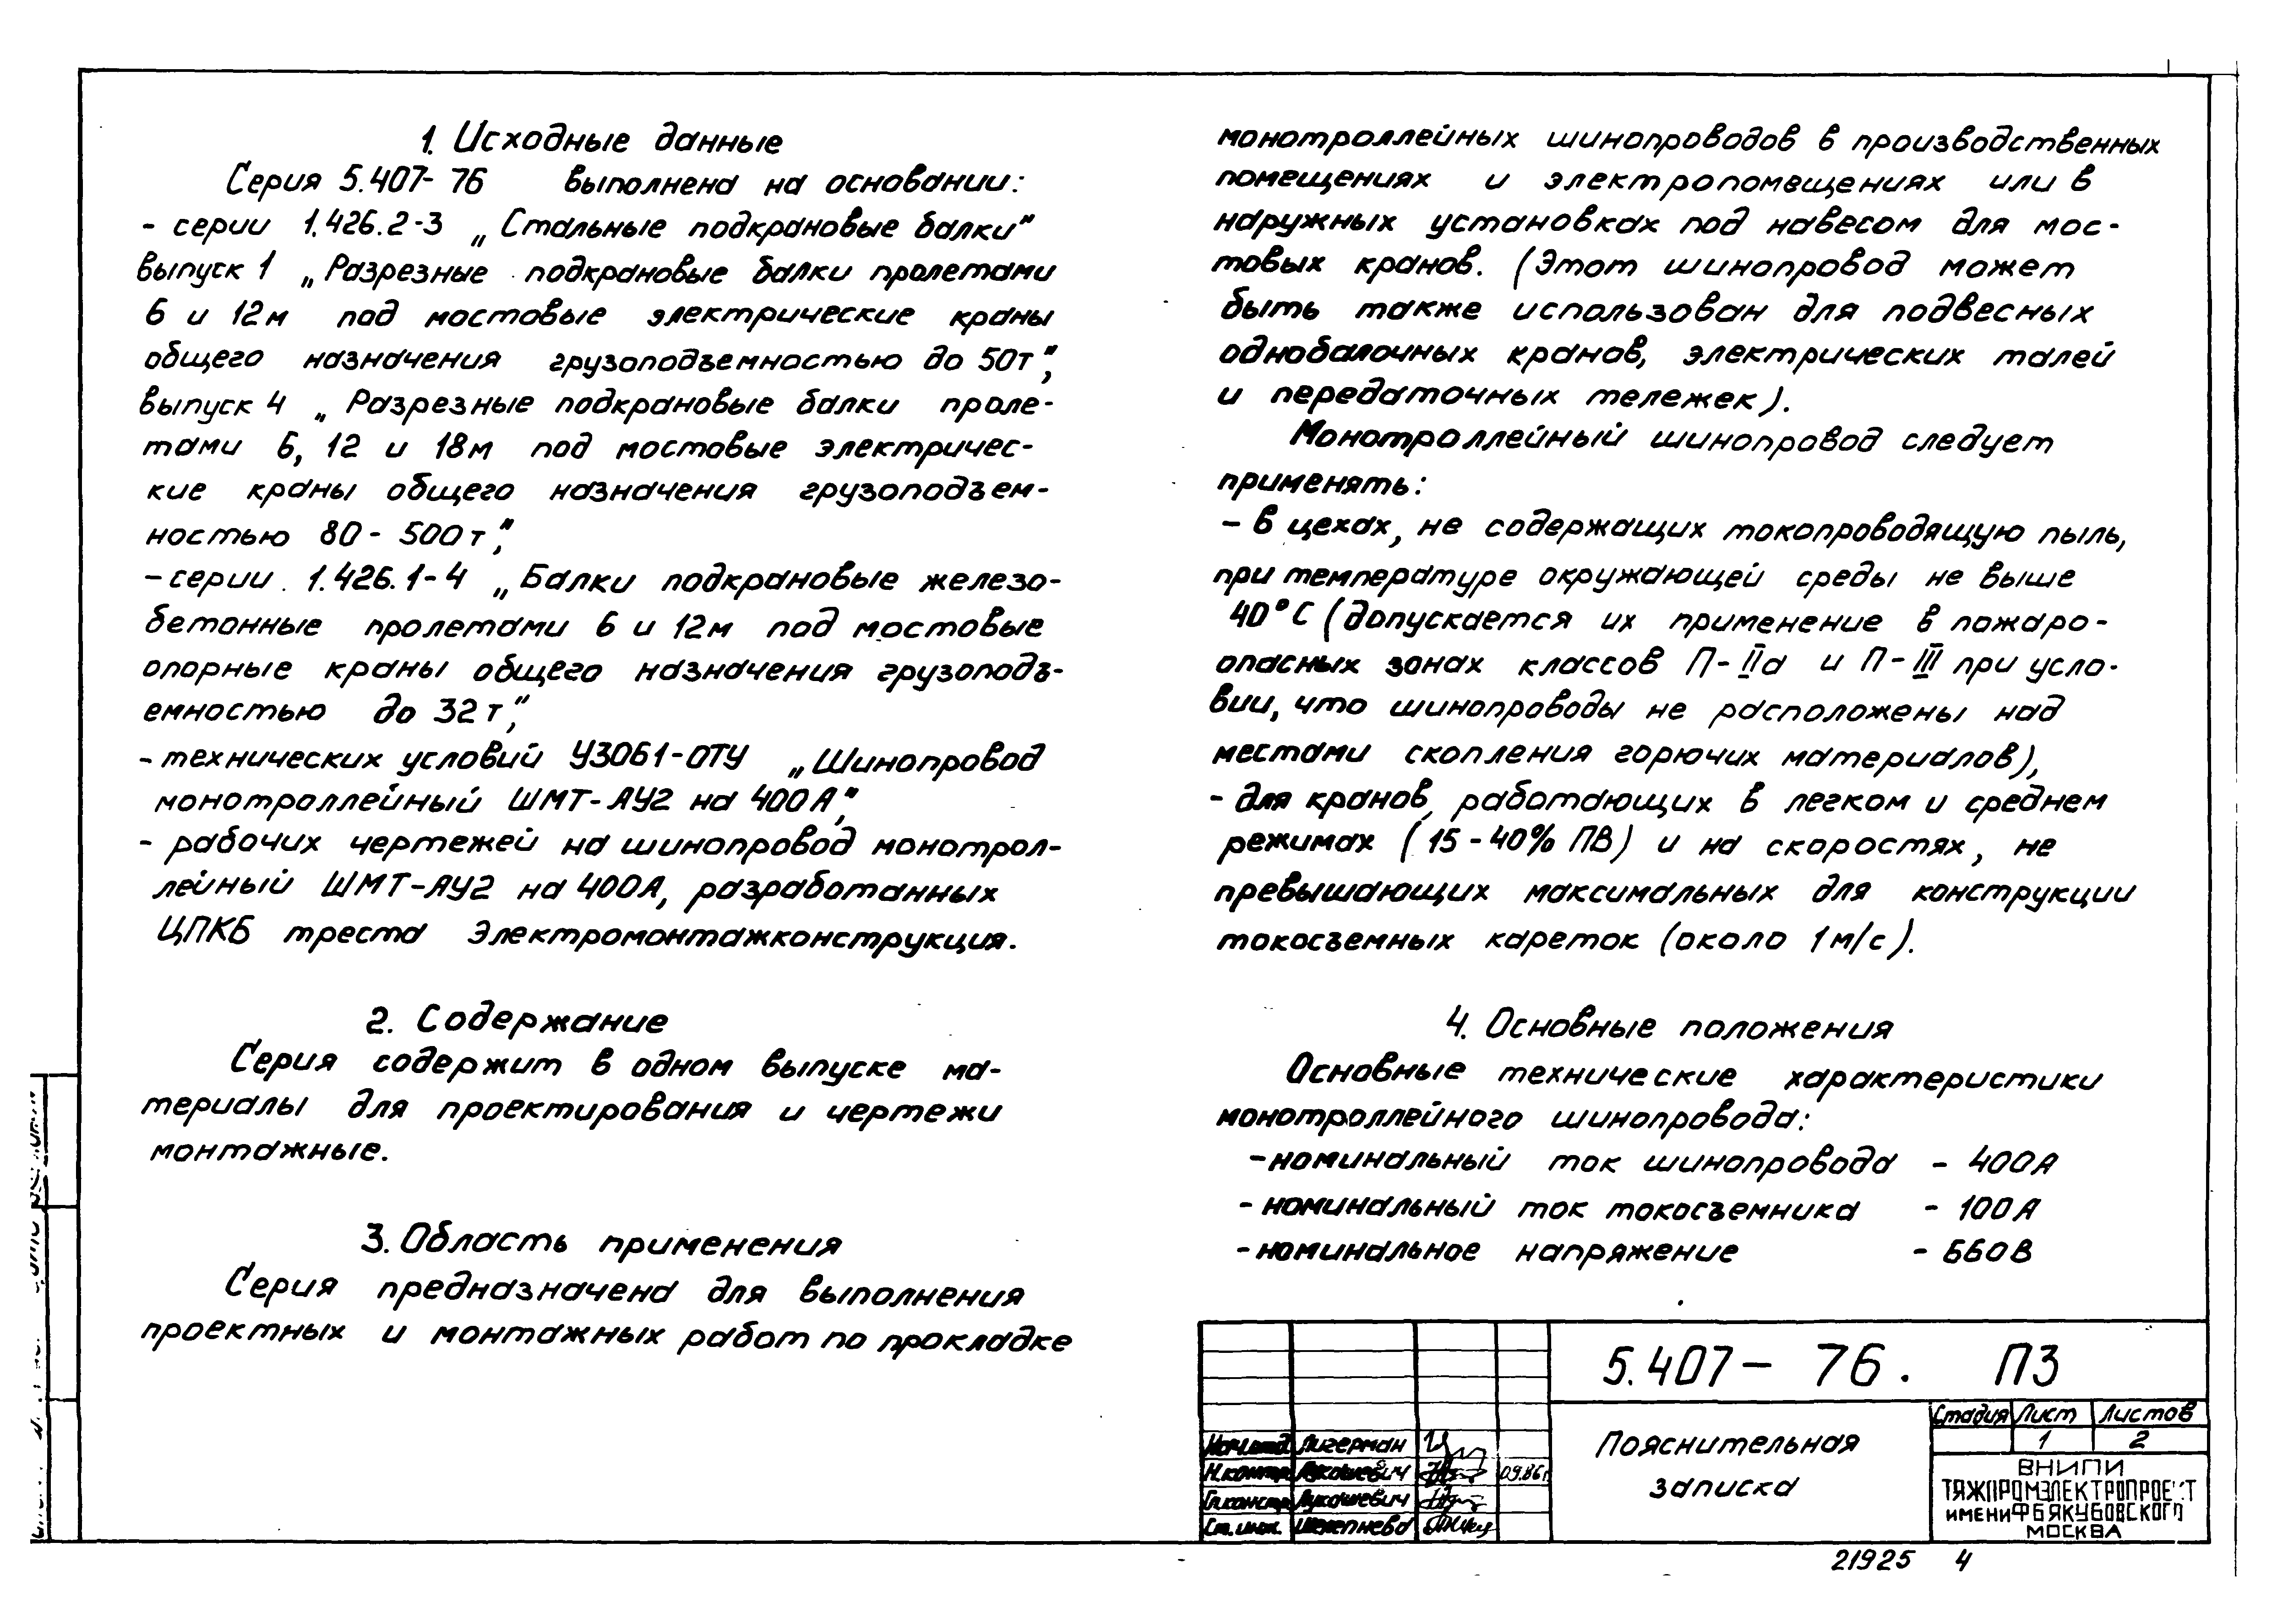 1. Исходные данные
Серия 5.407-76 выполнена на основании:
- серии 1.426.2-3 „Стальные подкрановые балки"
выпуск 1 „Разрезные подкрановые балки пролетами
6 и 12м под мостовые электрические краны
общего назначения грузоподъемностью до 50т",
выпуск 4 „Разрезные подкрановые балки проле-
тами 6, 12 и 18м под мостовые электричес-
кие краны общего назначения грузоподъем-
ностью 80-500т",
- серии 1.426.1-4 „Балки подкрановые железо-
бетонные пролетами 6 и 12м под мостовые
опорные краны общего назначения грузоподъ-
емностью до 32т",
- технических условий У3061-ОТУ „Шинопровод
монотроллейный ШМТ-АУ2 на 400А",
- рабочих чертежей на шинопровод монотрол-
лейный ШМТ-АУ2 на 400А, разработанных
ЦПКБ треста Электромонтажконструкция.
2. Содержание
Серия содержит в одном выпуске ма-
териалы для проектирования и чертежи
монтажные.
3. Область применения
Серия предназначена для выполнения
проектных и монтажных работ по прокладке
монотроллейных шинопроводов в производственных
помещениях и электропомещениях или в
наружных установках под навесом для мос-
товых кранов. (Этот шинопровод может
быть также использован для подвесных
однобалочных кранов, электрических талей
и передаточных тележек).
Монотроллейный шинопровод следует
применять:
- в цехах, не содержащих токопроводящую пыль,
при температуре окружающей среды не выше
40°С (допускается их применение в пожаро-
опасных зонах классов П-IIа и П-III при усло-
вии, что шинопроводы не расположены над
местами скопления горючих материалов),
- для кранов, работающих в легком и среднем
режимах (15-40% ПВ) и на скоростях, не
превышающих максимальных для конструкции
токосъемных кареток (около 1м/с).
4. Основные положения
Основные технические характеристики
монотроллейного шинопровода:
- номинальный ток шинопровода - 400А
- номинальный ток токосъемника - 100А
- номинальное напряжение - 660В
5.407-76. ПЗ
Стадия Лист Листов
1 2
Пояснительная
записка
Нач.отд Лигерман
Н.контр Лукашевич 09.86г
Гл.констр Лукашевич
Ст.инж. Шелепнева
ВНИПИ
ТЯЖПРОМЭЛЕКТРОПРОЕКТ
ИМЕНИ Ф Б ЯКУБОВСКОГО
МОСКВА
21925 4